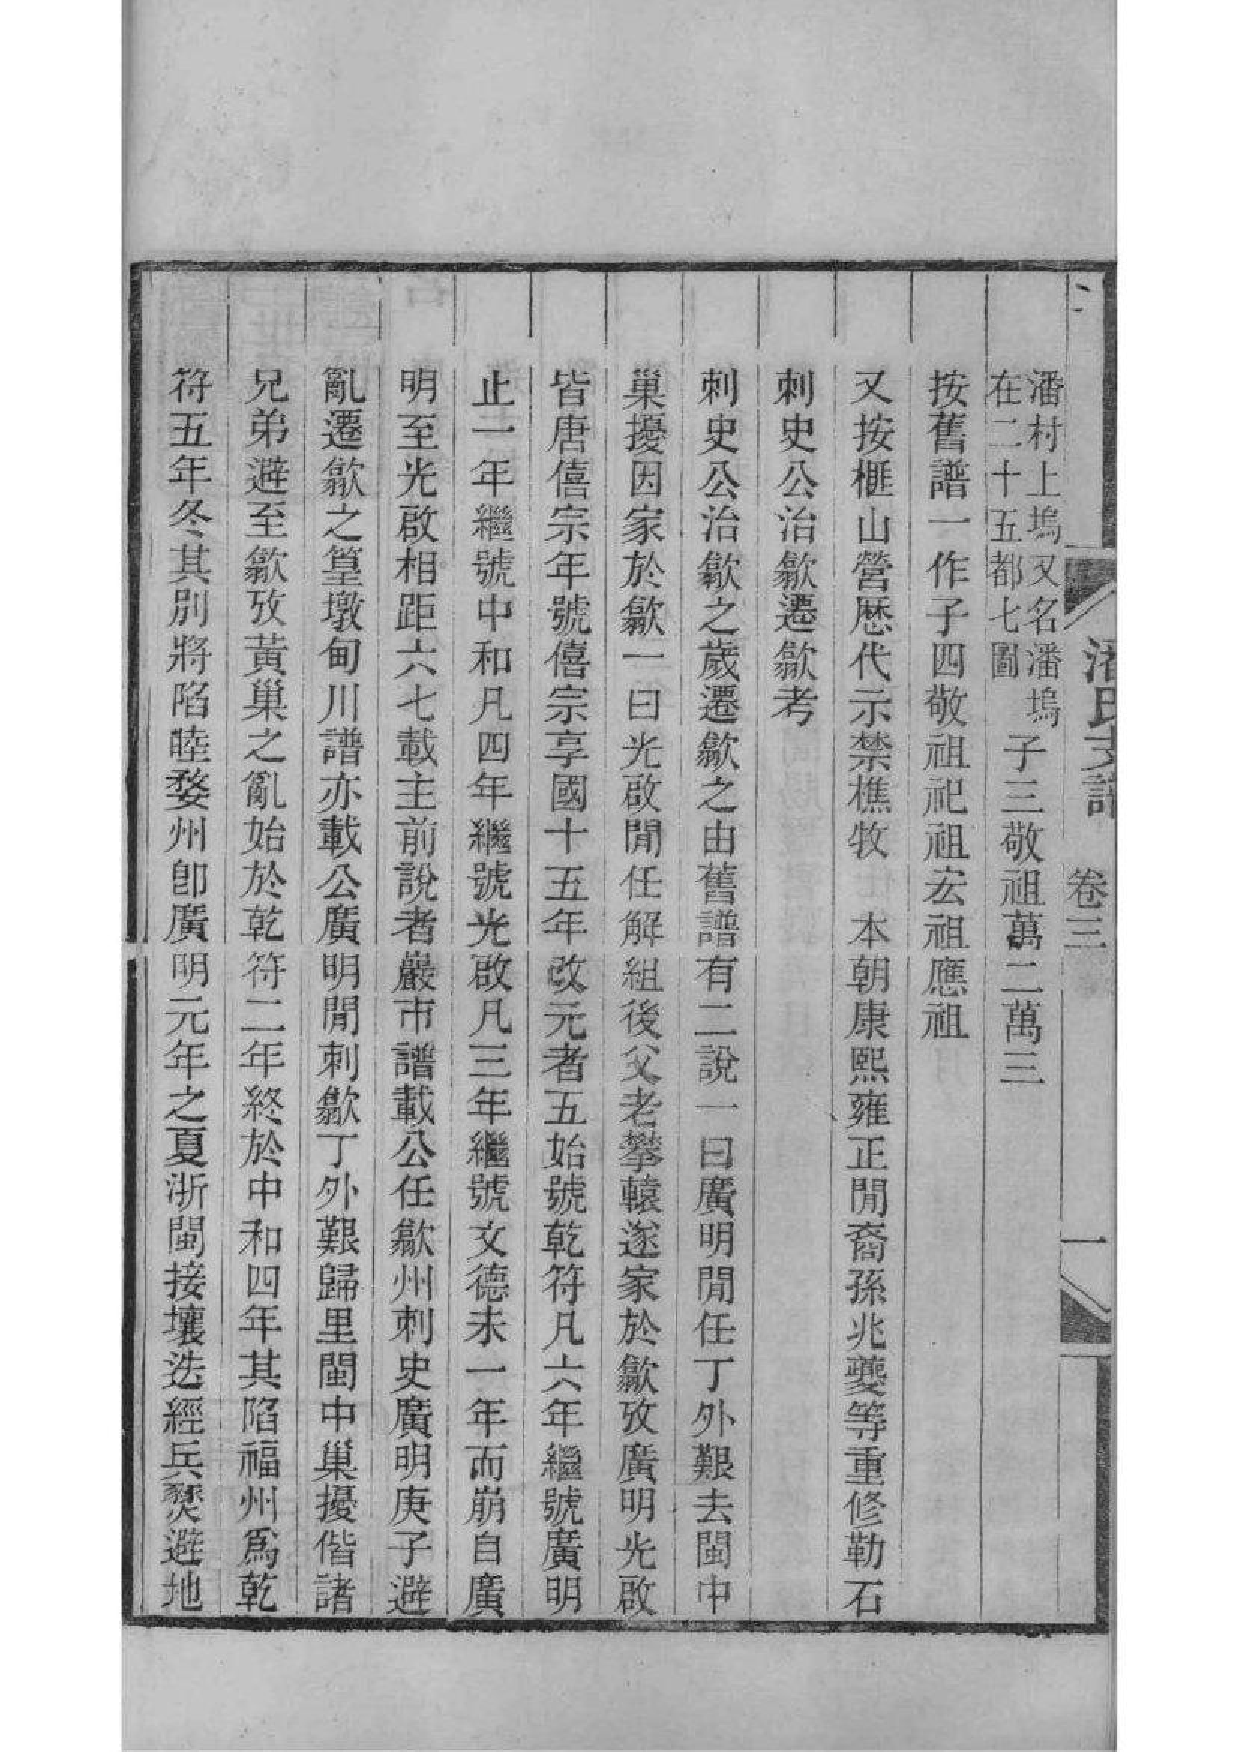 潘氏支譜　卷三　一
潘村上塢又名潘塢
在二十五都七圖
子三敬祖萬二萬三
按舊譜一作子四敬祖祀祖宏祖應祖
又按榧山營歷代示禁樵牧　本朝康熙雍正閒裔孫兆夔等重修勒石
刺史公治歙遷歙考
刺史公治歙之歲遷歙之由舊譜有二說一曰廣明閒任丁外艱去閩中
巢擾因家於歙一曰光啟閒任解組後父老攀轅遂家於歙攷廣明光啟
皆唐僖宗年號僖宗享國十五年改元者五始號乾符凡六年繼號廣明
止一年繼號中和凡四年繼號光啟凡三年繼號文德未一年而崩自廣
明至光啟相距六七載主前說者巖市譜載公任歙州刺史廣明庚子避
亂遷歙之篁墩甸川譜亦載公廣明閒刺歙丁外艱歸里閩中巢擾偕諸
兄弟避至歙攷黃巢之亂始於乾符二年終於中和四年其陷福州爲乾
符五年冬其別將陷睦婺州卽廣明元年之夏浙閩接壤迭經兵燹避地